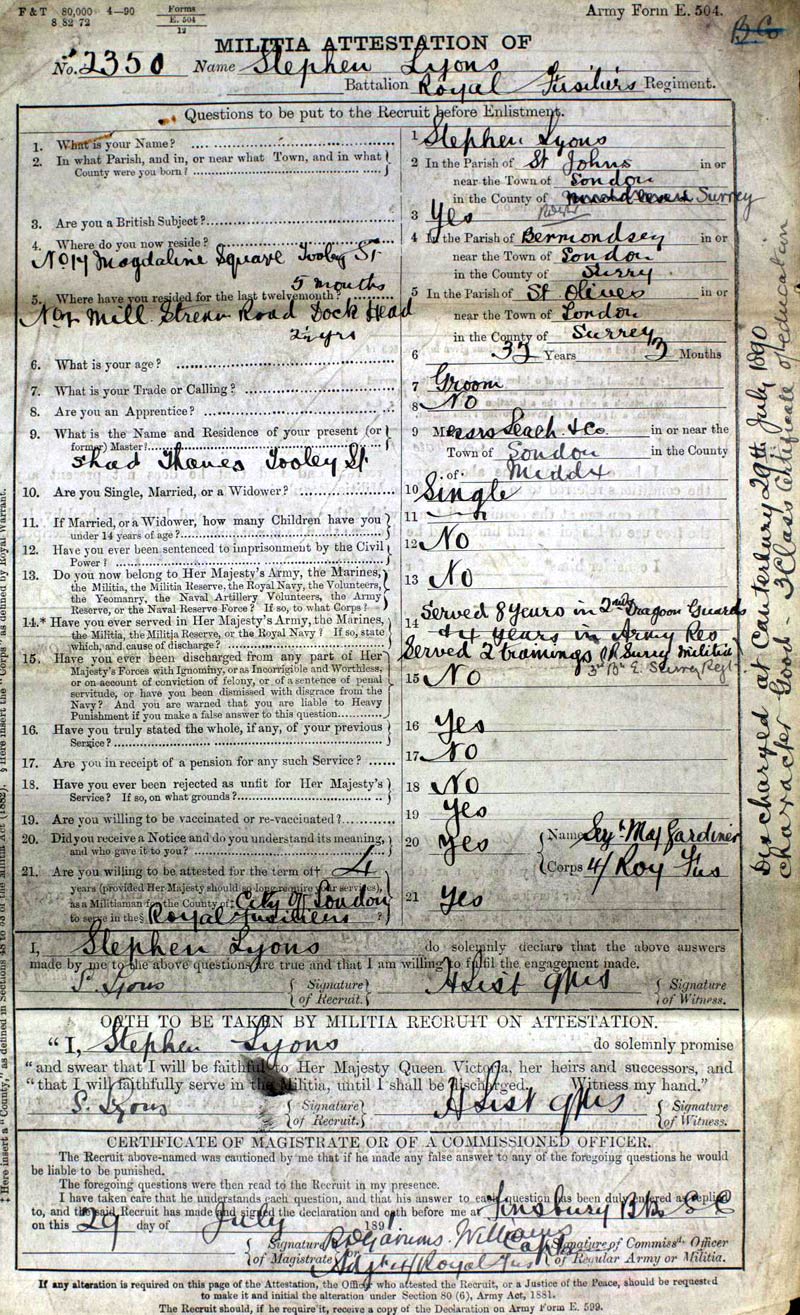 F & T 80,000 4—90
8 82 72
Forms
E. 504
12
Army Form E. 504.
B Co
MILITIA ATTESTATION OF
No. 2350 Name Stephen Lyons
Battalion Royal Fusiliers Regiment.
Questions to be put to the Recruit before Enlistment.
1. What is your Name? 1 Stephen Lyons
2. In what Parish, and in, or near what Town, and in what County were you born? 2 In the Parish of St Johns in or
near the Town of London
in the County of Surrey
3. Are you a British Subject? 3 Yes
4. Where do you now reside? 4 In the Parish of Bermondsey in or
No 17 Magdaline Square Tooley St near the Town of London
5 months in the County of Surry
5. Where have you resided for the last twelvemonth? 5 In the Parish of St Olives in or
Mill Road Dock Head near the Town of London
2½ yrs in the County of Surrey
6. What is your age? 6 Years 3 Months
7. What is your Trade or Calling? 7 Groom
8. Are you an Apprentice? 8 No
9. What is the Name and Residence of your present (or former) Master? 9 Messrs Leach & Co in or near the
Shad Thames Tooley St Town of London in the County
of Middx
10. Are you Single, Married, or a Widower? 10 Single
11. If Married, or a Widower, how many Children have you under 14 years of age? 11
12. Have you ever been sentenced to imprisonment by the Civil Power? 12 No
13. Do you now belong to Her Majesty's Army, the Marines,
the Militia, the Militia Reserve, the Royal Navy, the Volunteers,
the Yeomanry, the Naval Artillery Volunteers, the Army
Reserve, or the Naval Reserve Force? If so, to what Corps? 13 No
14.* Have you ever served in Her Majesty's Army, the Marines,
the Militia, the Militia Reserve, or the Royal Navy? If so, state
which, and cause of discharge? 14 Served 8 Years in 2nd Dragoon Guards
& 4 Years in Army Res
Served 2 trainings R. Surry Militia
3rd Bn E. Surrey Regt
15. Have you ever been discharged from any part of Her
Majesty's Forces with Ignominy, or as Incorrigible and Worthless,
or on account of conviction of felony, or of a sentence of penal
servitude, or have you been dismissed with disgrace from the
Navy? And are you warned that you are liable to Heavy
Punishment if you make a false answer to this question 15 No
16. Have you truly stated the whole, if any, of your previous Service? 16 Yes
17. Are you in receipt of a pension for any such Service? 17 No
18. Have you ever been rejected as unfit for Her Majesty's Service? If so, on what grounds? 18 No
19. Are you willing to be vaccinated or re-vaccinated? 19 Yes
20. Did you receive a Notice and do you understand its meaning, and who gave it to you? 20 Yes Name Sergt Maj Gardiner
Corps 4/ Roy Fus
21. Are you willing to be attested for the term of† 4
years (provided Her Majesty should so long require your services),
as a Militiaman for the County of‡ City of London
to serve in the§ Royal Fusiliers ? 21 Yes
I, Stephen Lyons do solemnly declare that the above answers
made by me to the above questions are true and that I am willing to fulfil the engagement made.
S. Lyons Signature of Recruit. Signature of Witness.
OATH TO BE TAKEN BY MILITIA RECRUIT ON ATTESTATION.
"I, Stephen Lyons do solemnly promise
"and swear that I will be faithful to Her Majesty Queen Victoria, her heirs and successors, and
"that I will faithfully serve in the Militia, until I shall be discharged. Witness my hand."
S. Lyons Signature of Recruit. Signature of Witness.
CERTIFICATE OF MAGISTRATE OR OF A COMMISSIONED OFFICER.
The Recruit above-named was cautioned by me that if he made any false answer to any of the foregoing questions he would
be liable to be punished.
The foregoing questions were then read to the Recruit in my presence.
I have taken care that he understands each question, and that his answer to each question has been duly entered as replied
to, and the said Recruit has made and signed the declaration and oath before me at Finsbury
on this 29 day of July 189
Signature of Magistrate or Williams Capt Signature of Commissd. Officer of Regular Army or Militia.
Adjt 4/Royal Fus
If any alteration is required on this page of the Attestation, the Officer who attested the Recruit, or a Justice of the Peace, should be requested
to make it and initial the alteration under Section 80 (6), Army Act, 1881.
The Recruit should, if he require it, receive a copy of the Declaration on Army Form E. 599.
Discharged at Canterbury 29th July 1890
character Good - 3 Class Certificate of education